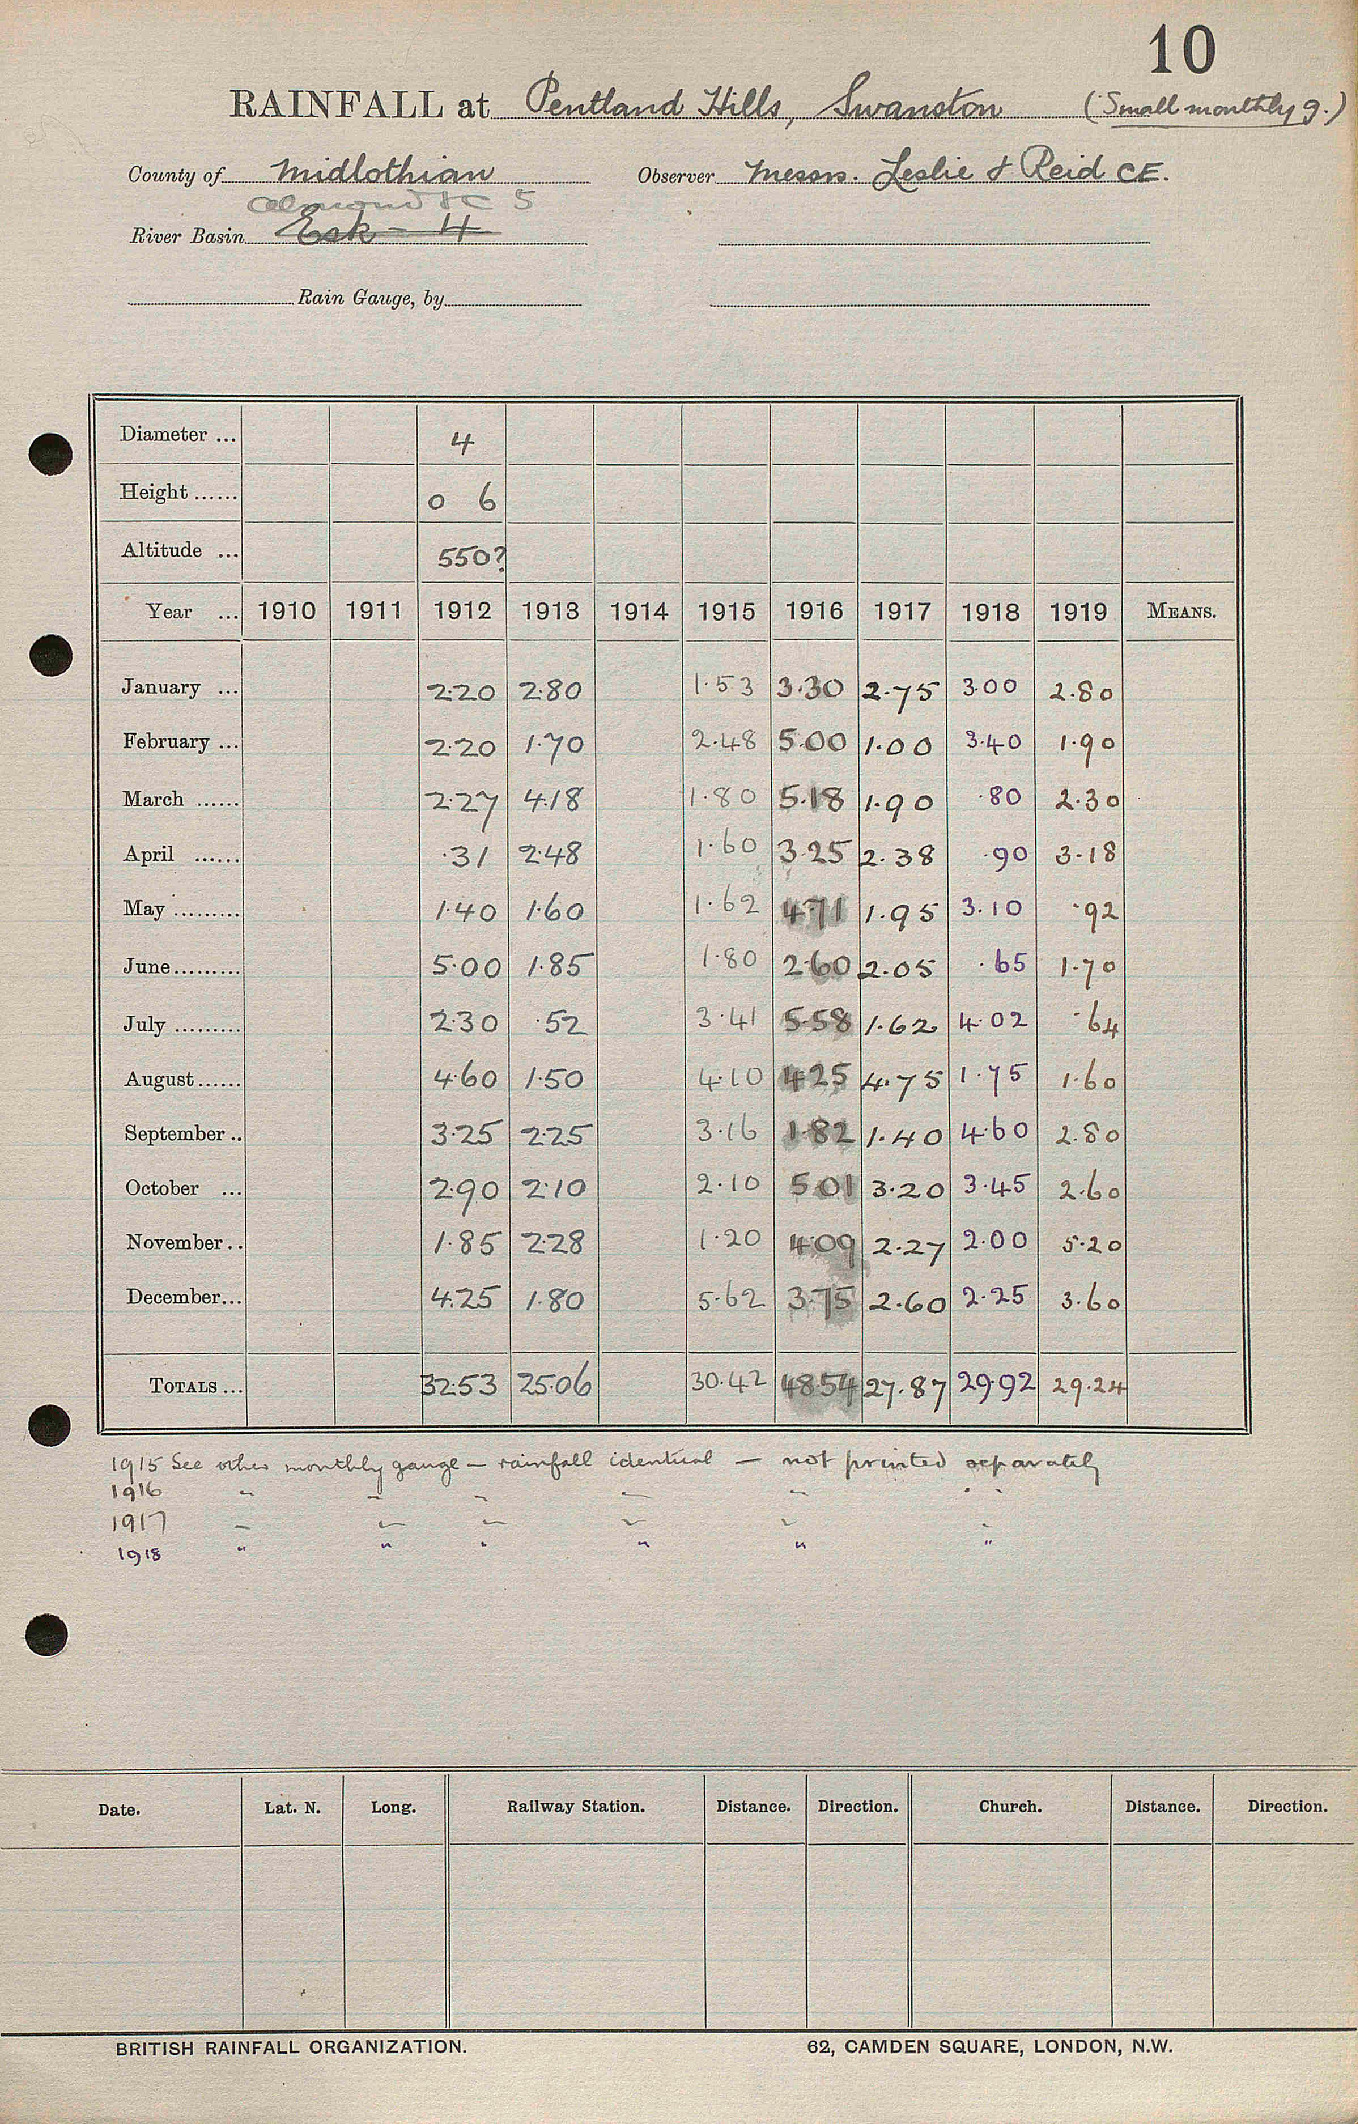 10
RAINFALL at Pentland Hills, Swanston (Small monthly g.)
County of Midlothian Observer Messrs. Leslie & Reid CE.
Almond &c 5
River Basin Esk - 4
Rain Gauge, by
Diameter ... 4
Height ...... 0 6
Altitude ... 550?
Year ... 1910 1911 1912 1913 1914 1915 1916 1917 1918 1919 MEANS.
January ... 2.20 2.80 1.53 3.30 2.75 3.00 2.80
February ... 2.20 1.70 2.48 5.00 1.00 3.40 1.90
March ...... 2.27 4.18 1.80 5.18 1.90 .80 2.30
April ...... .31 2.48 1.60 3.25 2.38 .90 3.18
May ......... 1.40 1.60 1.62 4.71 1.95 3.10 .92
June......... 5.00 1.85 1.80 2.60 2.05 .65 1.70
July ......... 2.30 .52 3.41 5.58 1.62 4.02 .64
August...... 4.60 1.50 4.10 4.25 4.75 1.75 1.60
September .. 3.25 2.25 3.16 1.82 1.40 4.60 2.80
October ... 2.90 2.10 2.10 5.01 3.20 3.45 2.60
November .. 1.85 2.28 1.20 4.09 2.27 2.00 5.20
December... 4.25 1.80 5.62 3.75 2.60 2.25 3.60
TOTALS ... 32.53 25.06 30.42 48.54 27.87 29.92 29.24
1915 See other monthly gauge — rainfall identical — not printed separately
1916 " " " " " " "
1917 " " " " " "
1918 " " " " " "
Date. Lat. N. Long. Railway Station. Distance. Direction. Church. Distance. Direction.
BRITISH RAINFALL ORGANIZATION. 62, CAMDEN SQUARE, LONDON, N.W.